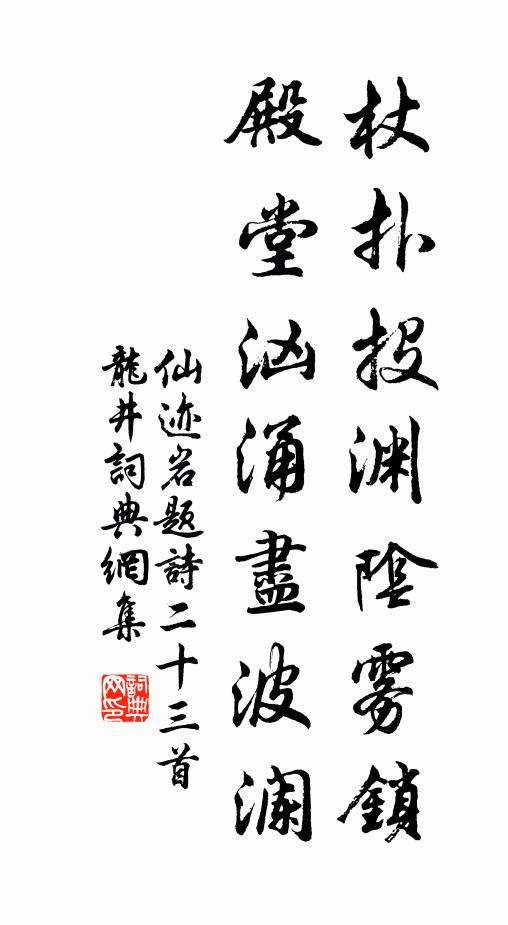 杖扑投渊陰雾鎖
殿堂汹涌盡波澜
仙迹岩题詩二十三首
龍井詞典網集
詞典网印